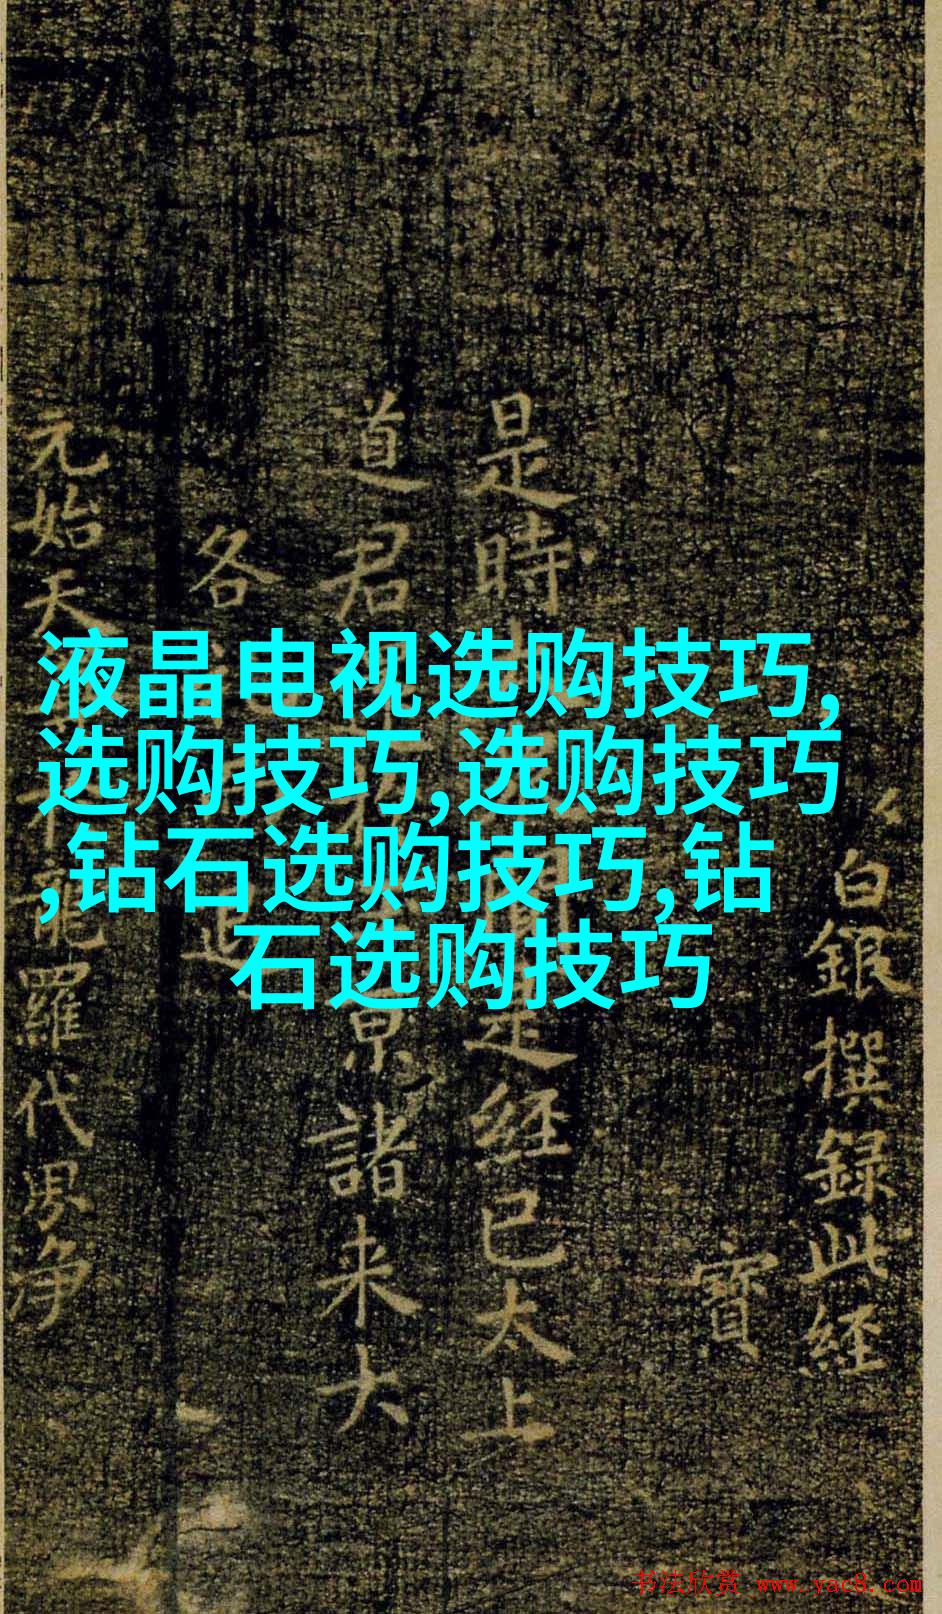 液晶电视选购技巧,
选购技巧,选购技巧
,钻石选购技巧,钻
石选购技巧
白銀撰録此經
寶
是時
是經已太上
道君
京諸来大
各
元始天
龍羅代界净
书法欣赏 www.yac8.com